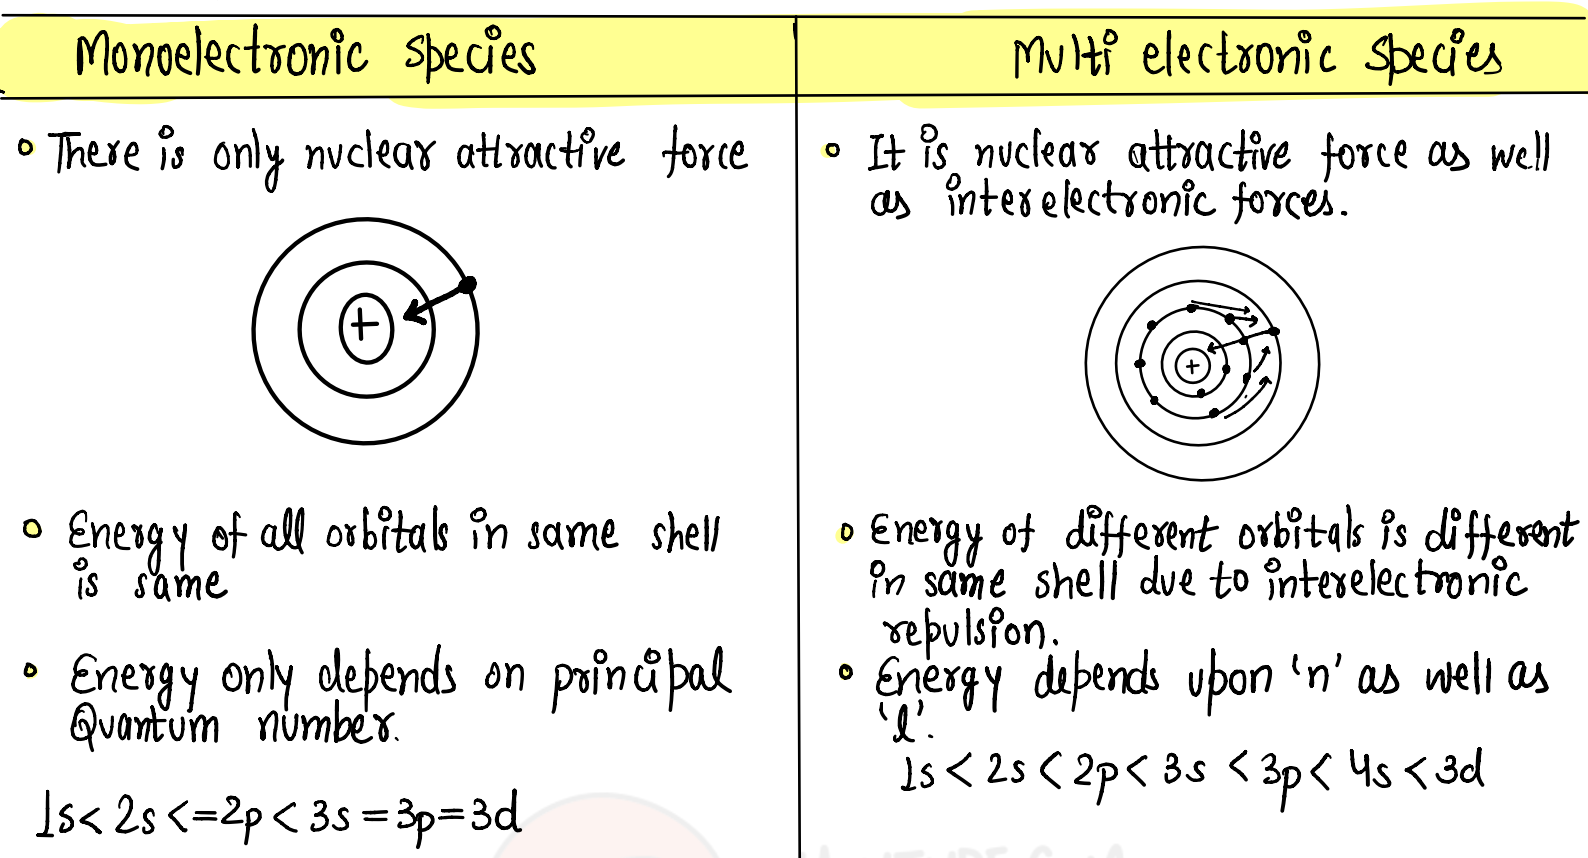 Monoelectronic species
There is only nuclear attractive force
+
Energy of all orbitals in same shell
is same
Energy only depends on principal
Quantum number.
1s < 2s <= 2p < 3s = 3p = 3d
Multi electronic species
It is nuclear attractive force as well
as interelectronic forces.
+
Energy of different orbitals is different
in same shell due to interelectronic
repulsion.
Energy depends upon 'n' as well as
'l'.
1s < 2s < 2p < 3s < 3p < 4s < 3d